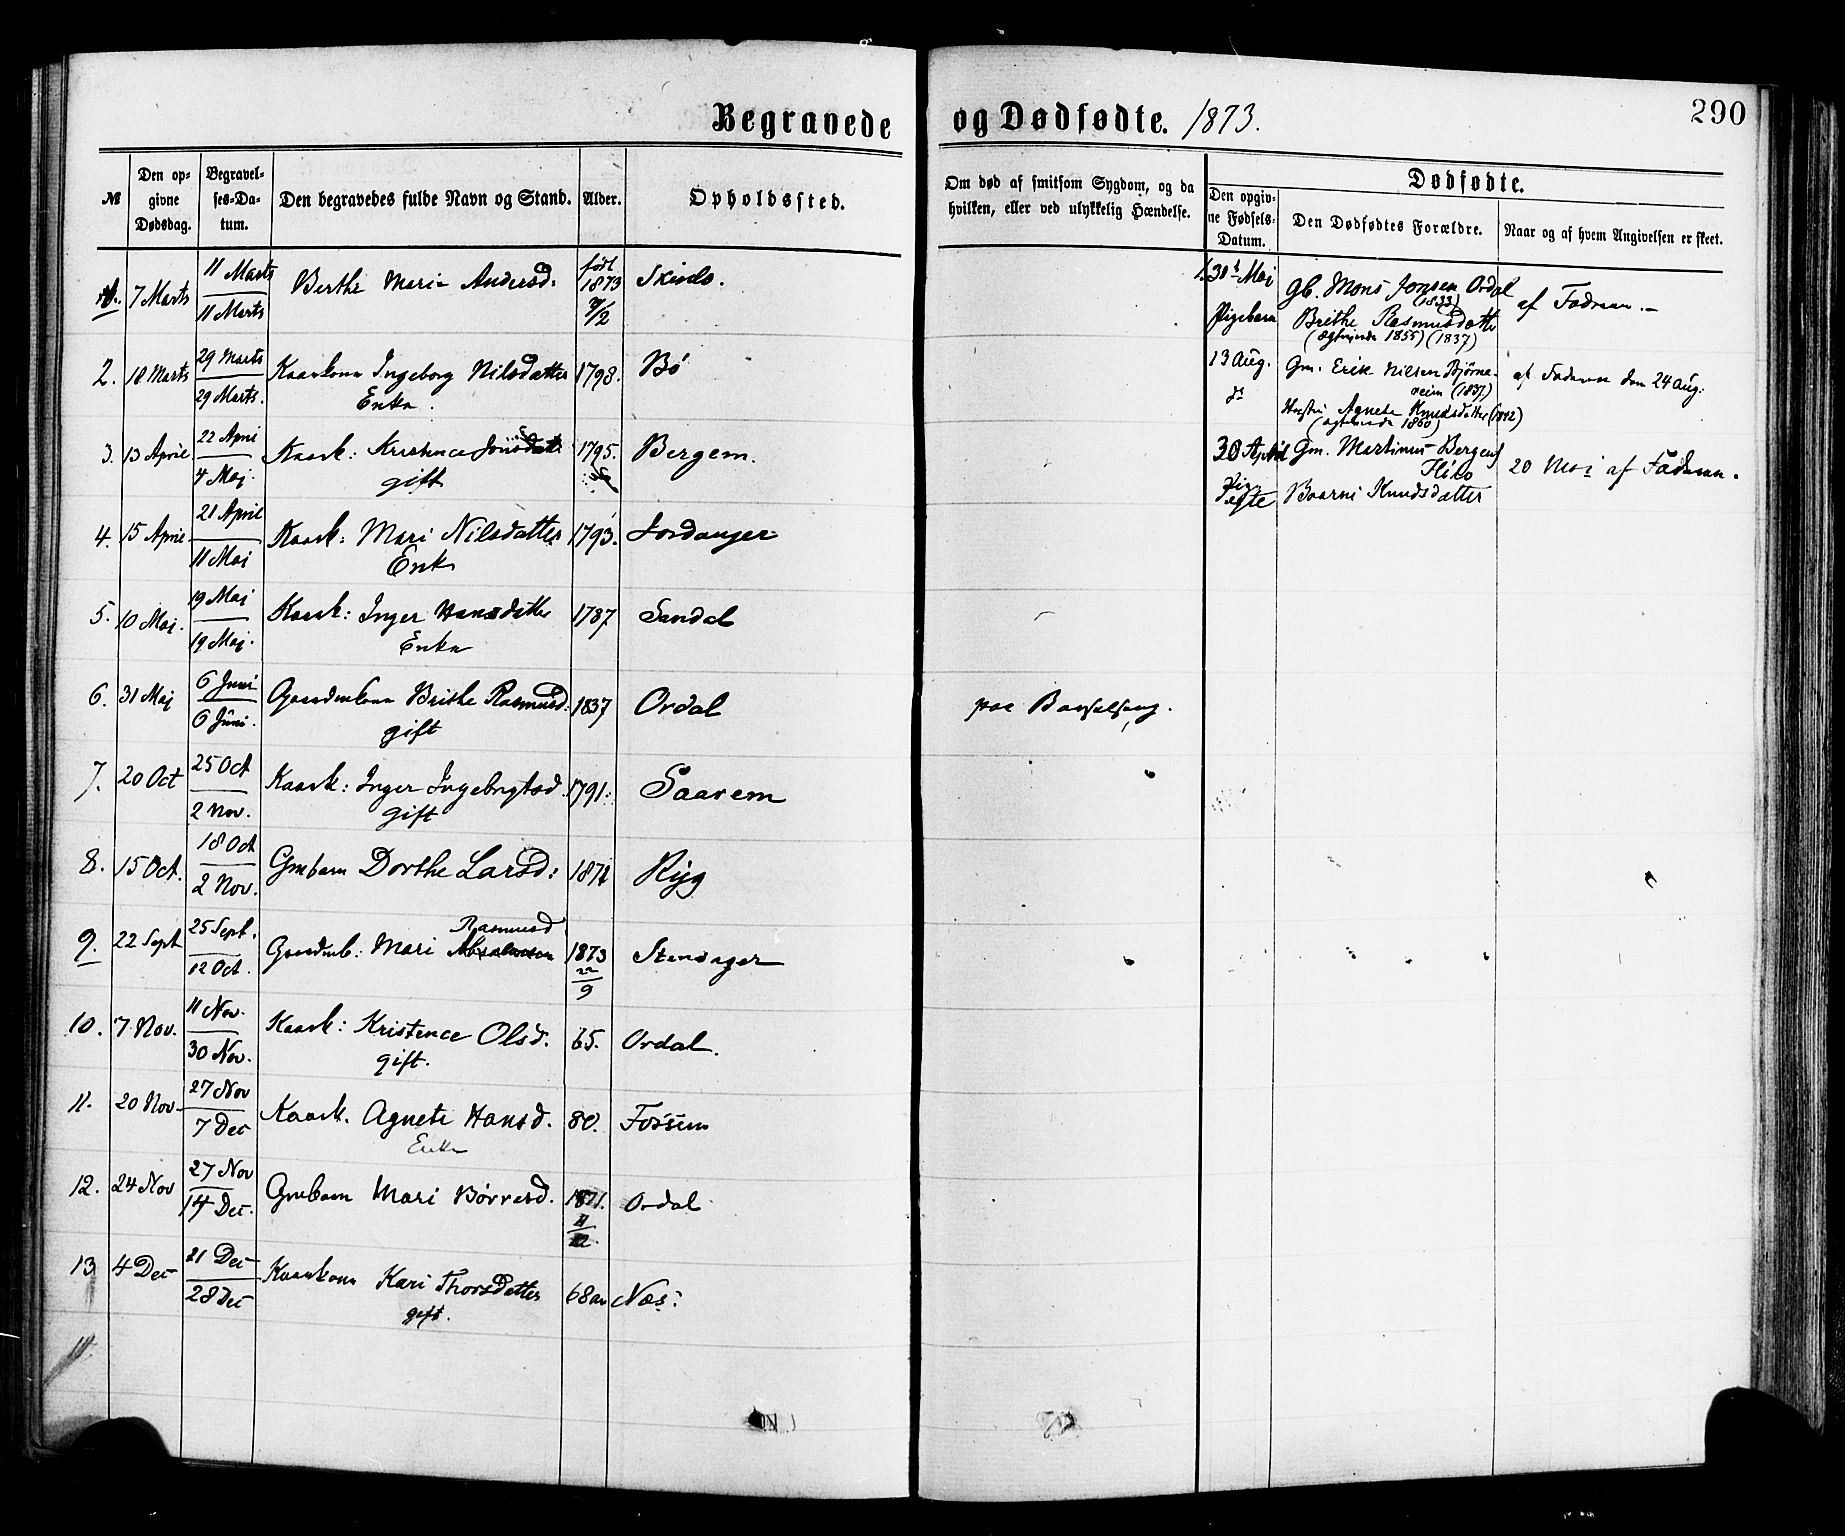 Begravede og Dødfødte. 1873.
290
№
Den opgivne Dødsdag.
Begravelses-Datum.
Den begravedes fulde Navn og Stand.
Alder.
Opholdssted.
Om død af smitsom Sygdom, og da hvilken, eller ved ulykkelig Hændelse.
Dødfødte.
Den opgivne Fødsels-Datum.
Den Dødfødtes Forældre.
Naar og af hvem Angivelsen er skeet.
1. 7 Marts 11 Marts 11 Marts Berthe Maria Andersd. født 1873
2. 18 Marts 29 Marts 29 Marts. Kaarkona Ingeborg Nilsdatter 1798. Bø
Enke.
3. 13 April 22 April 4 Maj. Kaark: Kristence 1795. Bergem.
gift
4. 15 April 21 April 11 Maj Kaark: Mari Nilsdatter 1793. Jordanger
Enke
5. 10 Maj. 19 Maj 19 Maj. Kaark: Inger Hansdatter 1787 Sandal
Enke
6. 31 Maj 6 Juni 6 Juni. Gaardmkona Brithe Rasmusd: 1837 Ordal paa Barselseng.
gift
7. 20 Oct 25 Oct 2 Nov. Kaark: Inger Ingebrigtsd. 1791. Saarem
gift
8. 15 Oct. 18 Oct 2 Nov. Gmbarn Dorthe Larsd: 1871 Ryg
Rasmusd
9. 22 Sept 25 Sept. 12 Oct. Gaardmb. Mari 1873 22/9 Stenager
10. 7 Nov. 11 Nov. 30 Nov. Kaark: Kristence Olsd. 65. Ordal.
gift.
11. 20 Nov. 27 Nov 7 Dec Kaark. Agnete Hansd. 80. Fossem
Enke
12. 24 Nov 27 Nov 14 Dec. Gmbarn Mari Børresd. 1871. Ordal
13 4 Dec 21 Dec 28 Dec Kaarkona Kari Thorsdatter 68 aar Næs.
gift.
14.
1. 31 Maj Gb. Mons Jonsen Ordal af Faderen.
(1833)
Pigebarn Brithe Rasmusdatter
(ægtevie 1855) (1837)
13 Aug. Gm. Erik Nilsen Bjørnareim (1837) af Faderen den 24 Aug.
do Hustru Agnete Knudsdatter (1842)
30 April Gm. Martinus Bergers 20 Maj af Faderen.
Baarni Knudsdatter